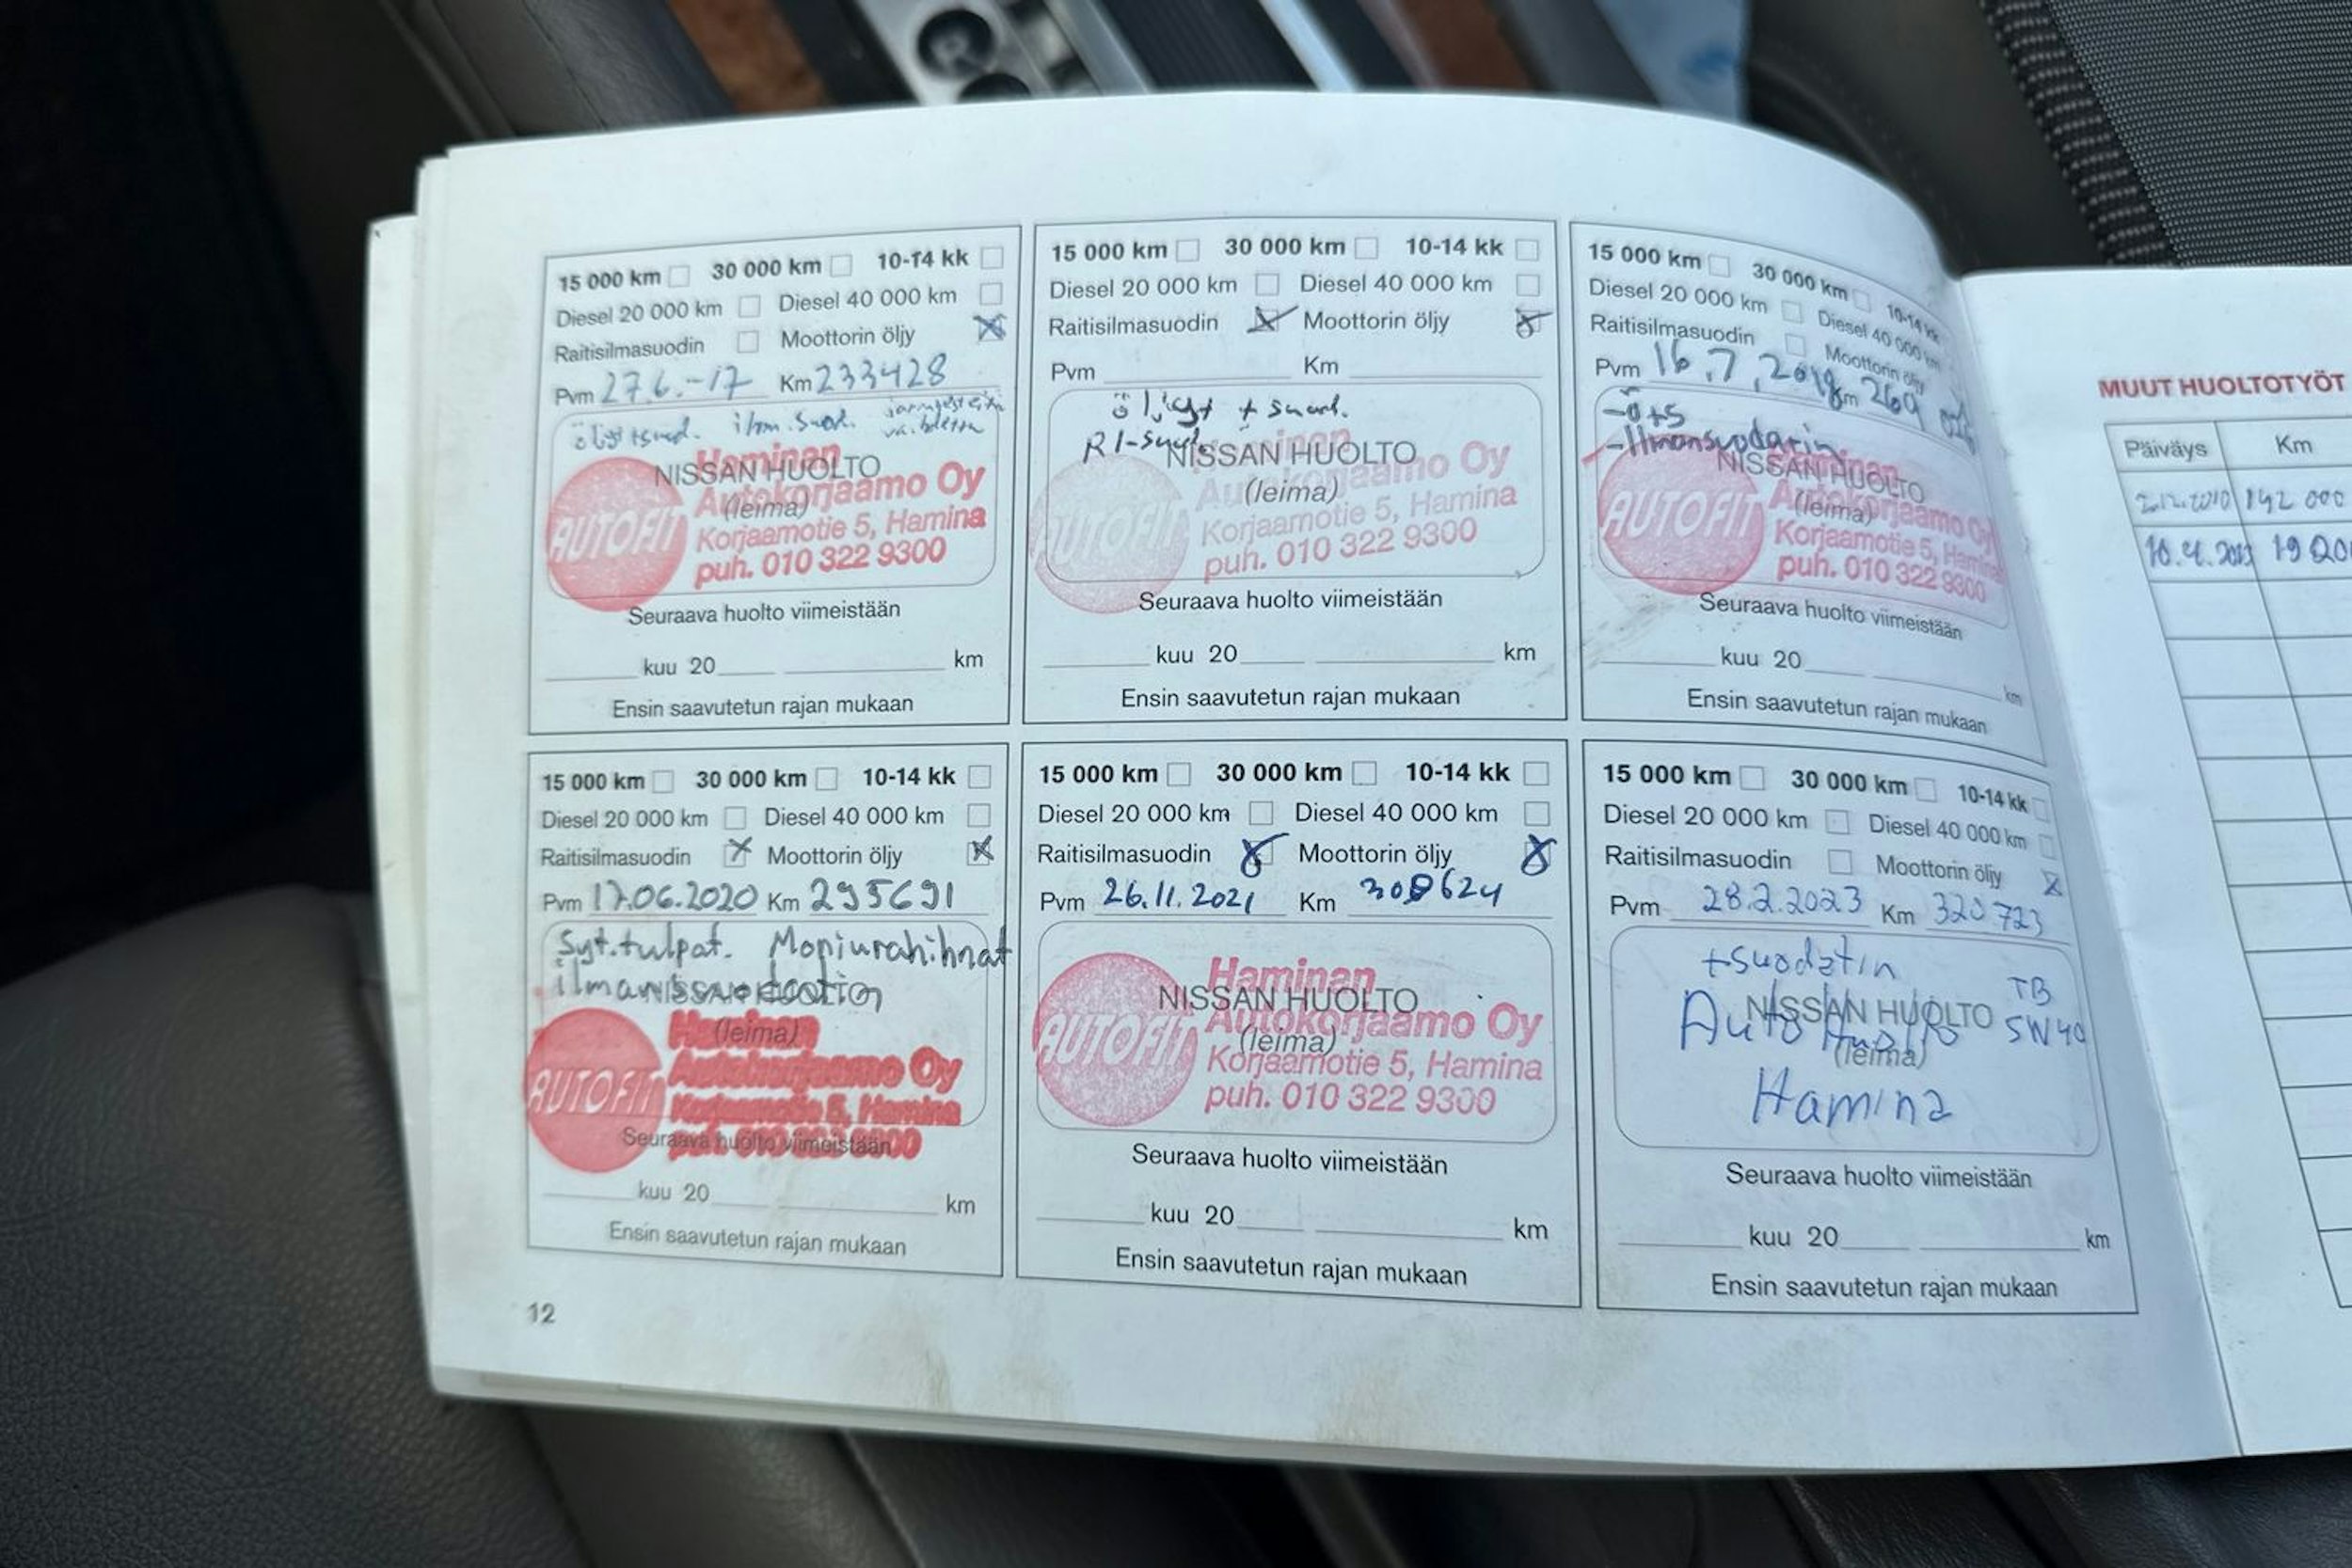 15 000 km 30 000 km 10-14 kk
Diesel 20 000 km Diesel 40 000 km
Raitisilmasuodin Moottorin öljy
Pvm 27 6.-17 Km 233428
öljyt+suod. ilm.suod.
NISSAN HUOLTO
(leima)
AUTOFIT
Haminan
Autokorjaamo Oy
Korjaamotie 5, Hamina
puh. 010 322 9300
Seuraava huolto viimeistään
kuu 20 km
Ensin saavutetun rajan mukaan
15 000 km 30 000 km 10-14 kk
Diesel 20 000 km Diesel 40 000 km
Raitisilmasuodin Moottorin öljy
Pvm Km
öljyt + suod.
RI-suod.
NISSAN HUOLTO
(leima)
AUTOFIT
Haminan
Autokorjaamo Oy
Korjaamotie 5, Hamina
puh. 010 322 9300
Seuraava huolto viimeistään
kuu 20 km
Ensin saavutetun rajan mukaan
15 000 km 30 000 km 10-14 kk
Diesel 20 000 km Diesel 40 000 km
Raitisilmasuodin Moottorin öljy
Pvm 16.7.2018 Km 269
-ö+s
-Ilmansuodatin
NISSAN HUOLTO
(leima)
AUTOFIT
Haminan
Autokorjaamo Oy
Korjaamotie 5, Hamina
puh. 010 322 9300
Seuraava huolto viimeistään
kuu 20 km
Ensin saavutetun rajan mukaan
15 000 km 30 000 km 10-14 kk
Diesel 20 000 km Diesel 40 000 km
Raitisilmasuodin Moottorin öljy
Pvm 17.06.2020 Km 295691
Syt.tulpat. Moniurahihnat
ilmansuodatin
NISSAN HUOLTO
(leima)
AUTOFIT
Haminan
Autokorjaamo Oy
Korjaamotie 5, Hamina
puh. 010 322 9300
Seuraava huolto viimeistään
kuu 20 km
Ensin saavutetun rajan mukaan
15 000 km 30 000 km 10-14 kk
Diesel 20 000 km Diesel 40 000 km
Raitisilmasuodin Moottorin öljy
Pvm 26.11.2021 Km 308624
NISSAN HUOLTO
(leima)
AUTOFIT
Haminan
Autokorjaamo Oy
Korjaamotie 5, Hamina
puh. 010 322 9300
Seuraava huolto viimeistään
kuu 20 km
Ensin saavutetun rajan mukaan
15 000 km 30 000 km 10-14 kk
Diesel 20 000 km Diesel 40 000 km
Raitisilmasuodin Moottorin öljy
Pvm 28.2.2023 Km 320723
+suodatin
TB
5W40
NISSAN HUOLTO
(leima)
Auto Huolto
Hamina
Seuraava huolto viimeistään
kuu 20 km
Ensin saavutetun rajan mukaan
12
MUUT HUOLTOTYÖT
Päiväys Km
192 000
10.4.2013
R